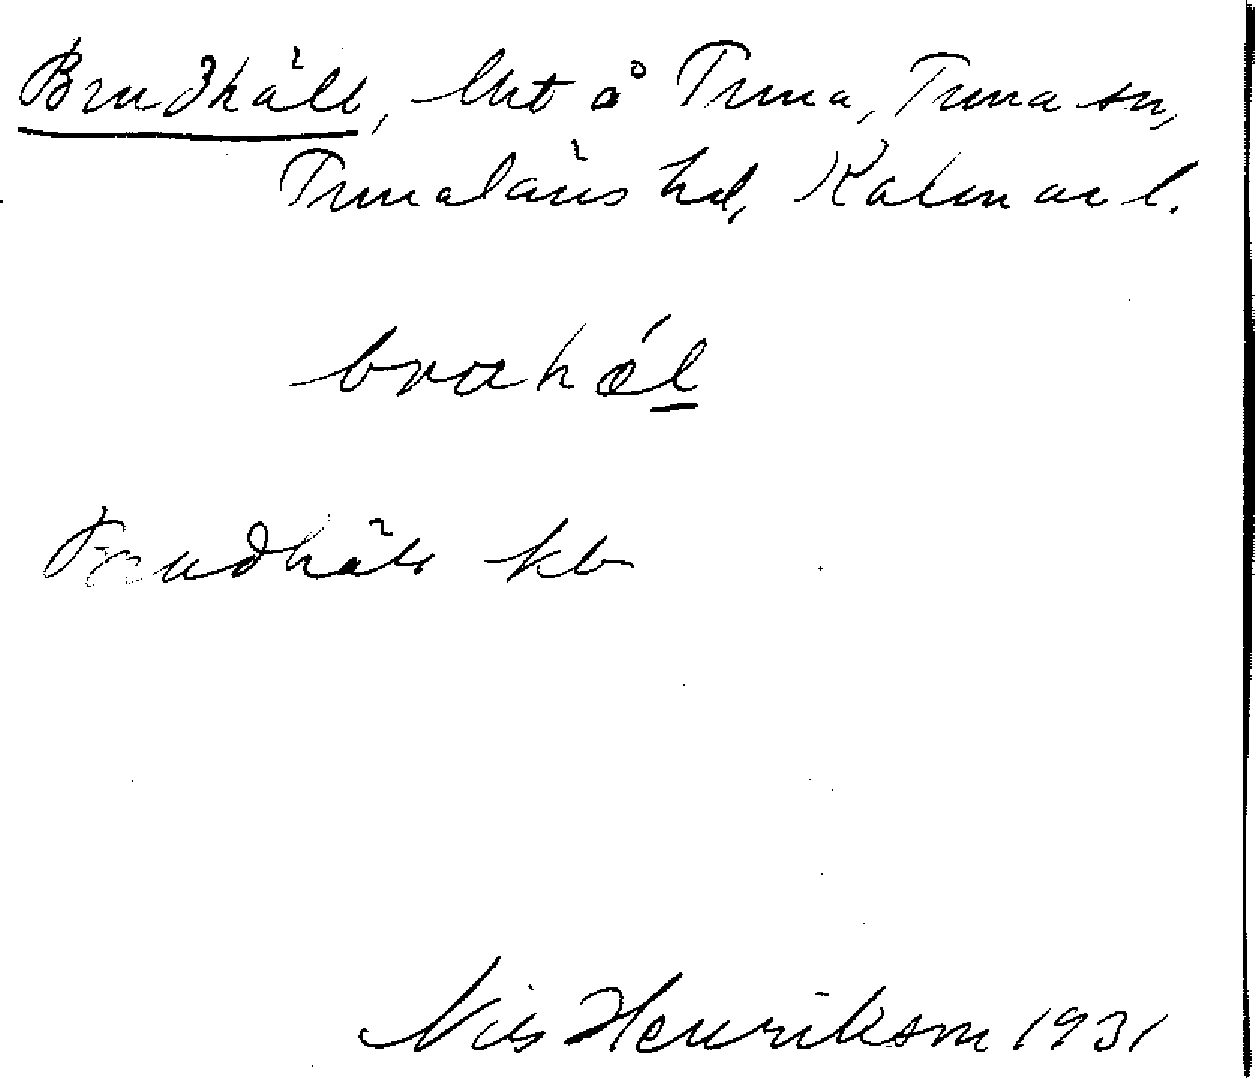 Brudhäll, lht å Tuna, Tuna sn,
Tunaläns hd, Kalmar l.
brahǽl
Brudhäll kb
Nils Henrikson 1931